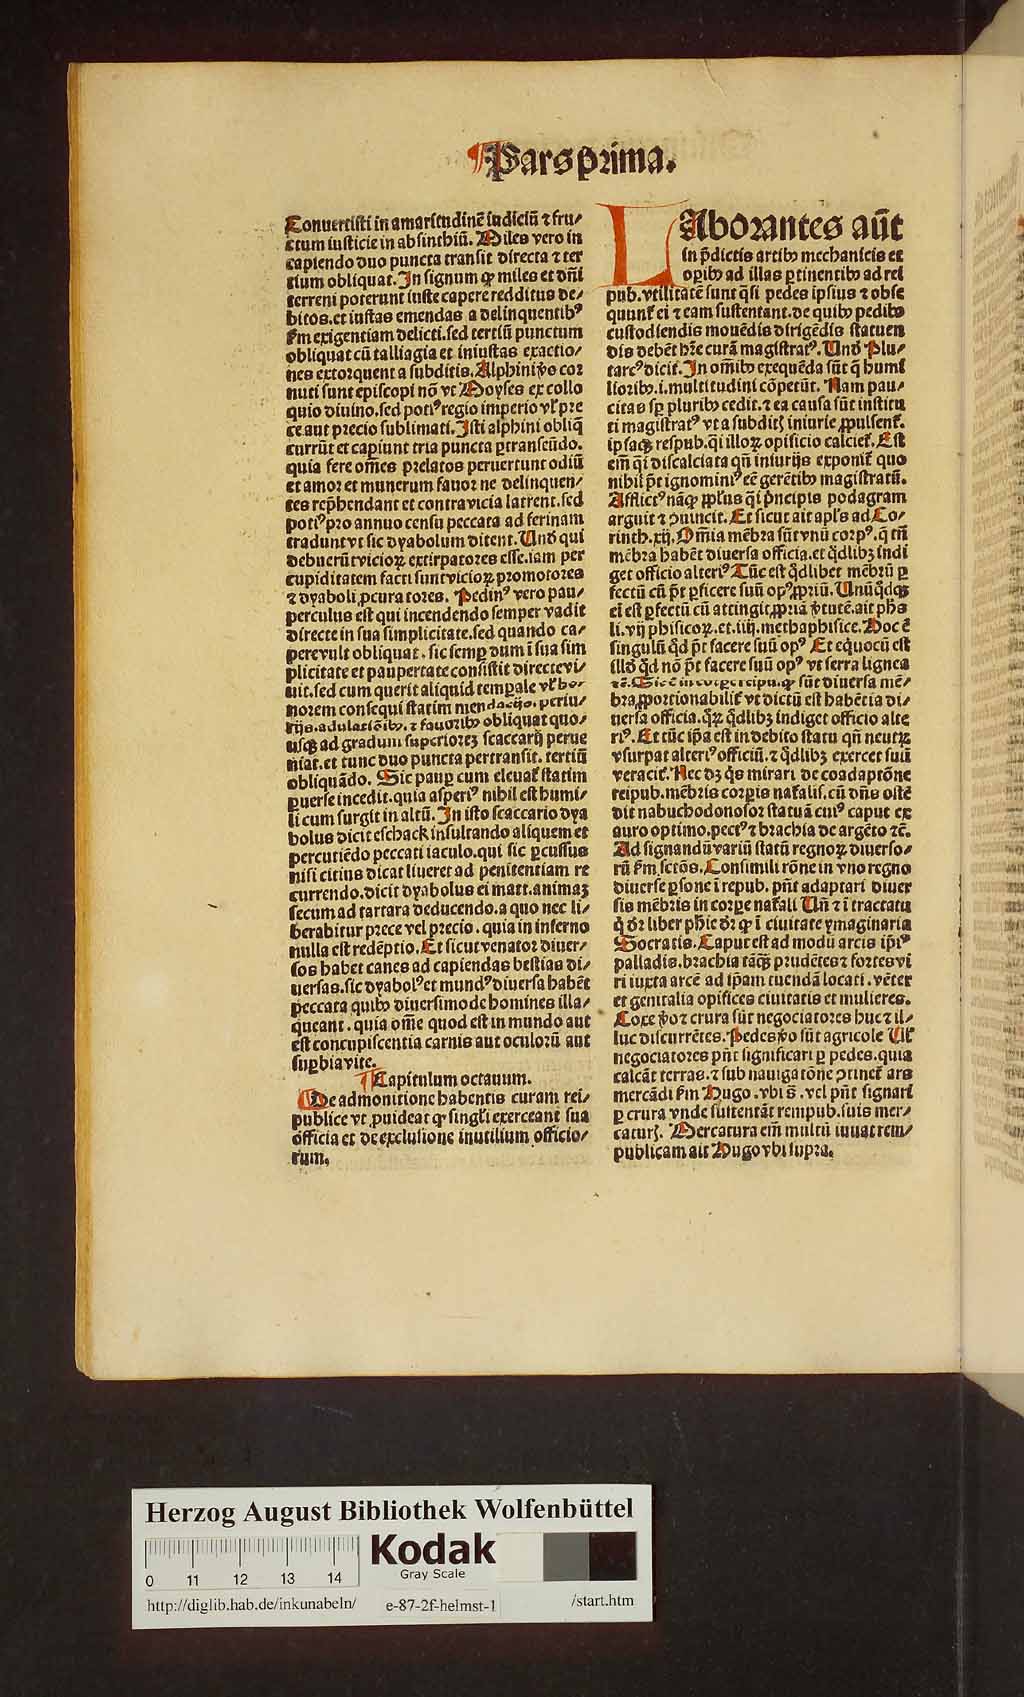 ¶Pars prima.
Conuertisti in amaritudinē iudiciū ⁊ fru⸗
ctum iusticie in absinthiū. Miles vero in
capiendo duo puncta transit directa ⁊ ter
tium obliquat. In signum ꝙ miles et dn̄i
terreni poterunt iuste capere redditus de⸗
bitos. et iustas emendas a delinquentibꝰ
ẜm exigentiam delicti. sed tertiū punctum
obliquat cū talliagia et iniustas exactio⸗
nes extorquent a subditis. Alphini ṽo cor
nuti sunt episcopi nō vt Moyses ex collo
quio diuino. sed potiꝰ regio imperio vl̕ pre
ce aut precio sublimati. Isti alphini obliq̄
currūt et capiunt tria puncta ꝑtranseūdo.
quia fere om̄es prelatos peruertunt odiū
et amor et munerum fauor ne delinquen⸗
tes rep̄hendant et contra vicia latrent. sed
potiꝰ pro annuo censu peccata ad ferinam
tradunt vt sic dyabolum ditent. Unde qui
debuerūt vicioꝝ extirpatores esse. iam per
cupiditatem facti sunt vicioꝝ promotores
⁊ dyaboli ꝓcuratores. Pedinꝰ vero pau⸗
perculus est qui incendendo semper vadit
directe in sua simplicitate. sed quando ca⸗
pere vult obliquat. sic semꝑ dum ī sua sim
plicitate et paupertate consistit directe vi⸗
uit. sed cum querit aliquid temꝑale vl̕ ho⸗
norem consequi statim mendacijs. periu⸗
rijs. adulatiōibꝫ. ⁊ fauoribꝫ obliquat quo⸗
usqꝫ ad gradum superiorez scaccarij perue
niat. et tunc duo puncta pertransit. tertiū
obliquādo. Sic pauꝑ cum eleuat̕ statim
ꝑuerse incedit. quia asperiꝰ nihil est humi⸗
li cum surgit in altū. In isto scaccario dya
bolus dicit eschack insultando aliquem et
percutiēdo peccati iaculo. qui sic ꝑcussus
nisi citius dicat liueret ad penitentiam re
currendo. dicit dyabolus ei matt. animaz
secum ad tartara deducendo. a quo nec li⸗
berabitur prece vel precio. quia in inferno
nulla est redēptio. Et sicut venator diuer⸗
sos habet canes ad capiendas bestias di⸗
uersas. sic dyabolꝰ et mundꝰ diuersa habēt
peccata quibꝫ diuersimode homines illa⸗
queant. quia om̄e quod est in mundo aut
est concupiscentia carnis aut oculorū aut
suꝑbia vite.
¶Capitulum octauum.
¶De admonitione habentis curam rei⸗
publice vt ꝓuideat ꝙ singl̕i exerceant sua
officia et de exclusione inutilium officio⸗
rum.
LAborantes aūt
in p̄dictis artibꝫ mechanicis et
oꝑibꝫ ad illas ꝑtinentibꝫ ad rei
pub. vtilitatē sunt q̄si pedes ipsius ⁊ obse
quunt̕ ei ⁊ eam sustentant. de quibꝫ pedibꝫ
custodiendis mouēdis dirigēdis statuen
dis debēt hr̄e curā magistratꝰ. Unde Plu⸗
tarcꝰ dicit. In om̄ibꝫ exequēda sūt q̄ humi
lioribꝫ. i. multitudini cōpetūt. Nam pau⸗
citas sꝑ pluribꝫ cedit. ⁊ ea causa sūt institu
ti magistratꝰ vt a subditꝭ iniurie ꝓpulsent̕.
ipsaqꝫ respub. q̄i illoꝝ opificio calciet̕. Est
em̄ q̄i discalciata qn̄ iniurijs exponit̕ quo
nihil p̄t ignominiꝰ eē gerētibꝫ magistratū.
Afflictꝰ nāqꝫ ppl̕us q̄i p̄ncipis podagram
arguit ⁊ ꝯuincit. Et sicut ait apl̕s ad Co⸗
rinth. xij. Om̄ia mēbra sūt vnū corpꝰ. q̄ tn̄
mēbra habēt diuersa officia. et q̄dlibꝫ indi
get officio alteriꝰ Tūc est q̄dlibet mēbrū ꝑ
fectū cū p̄t ꝑficere suū opꝰ ꝓpriū. Unūq̄dqꝫ
ei̅ est ꝑfectū cū attingit ꝓpriā v̓tutē. ait ph̄s
li. vij phisicoꝝ. et. iiij. methaphisice. Hoc ē
singulū q̄d p̄t facere suū opꝰ Et eq̄uocū est
illd̕ q̄d nō p̄t facere suū opꝰ vt serra lignea
⁊c̄. Sic ē in corꝑe reipu. ꝙ sūt diuersa mē⸗
bra ꝓportionabilit̕ vt dictū est habētia di⸗
uersa officia. q̄ꝝ q̄dlibꝫ indiget officio alte
riꝰ. Et tūc ip̄a est in debito statu qn̄ neutꝝ
vsurpat alteriꝰ officiū. ⁊ q̄dlibꝫ exercet suū
veracit̕. Nec dꝫ q̄s mirari de coadaptōne
reipub. mēbris corꝑis nat̕alis. cū dn̄s ostē
dit nabuchodonosor statuā cuiꝰ caput ex
auro optimo. pectꝰ ⁊ brachia de argēto ⁊c̄.
Ad signandū variū statū regnoꝝ diuerso⸗
rū ẜm sctōs. Consimili rōne in vno regno
diuerse ꝑsone ī repub. pn̄t adaptari diuer
sis mēbris in corꝑe nat̕ali Un̄ ⁊ ī tractatu
q̄ dr̄ liber phie dr̄ ꝙ ī ciuitate ymaginaria
Socratis. Caput est ad modū arcis ip̄iꝰ
palladis. brachia tāqꝫ prudētes ⁊ fortes vi
ri iuxta arcē ad ip̄am tuendā locati. vēter
et genitalia opifices ciuitatis et mulieres.
Coxe ṽo ⁊ crura sūt negociatores huc ⁊ il⸗
luc discurrētes. Pedes ṽo sūt agricole Ul̕
negociatores pn̄t significari ꝑ pedes. quia
calcāt terras. ⁊ sub nauigatōne ꝯtinet̕ ars
mercādi ẜm Hugo. vbi s̄. vel pn̄t signari
ꝑ crura vnde sustentāt rempub. suis mer⸗
caturꝭ. Mercatura em̄ multū iuuat rem⸗
publicam ait Hugo vbi supra.
Herzog August Bibliothek Wolfenbüttel
Kodak
Gray Scale
0 11 12 13 14
http://diglib.hab.de/inkunabeln/ e-87-2f-helmst-1 /start.htm